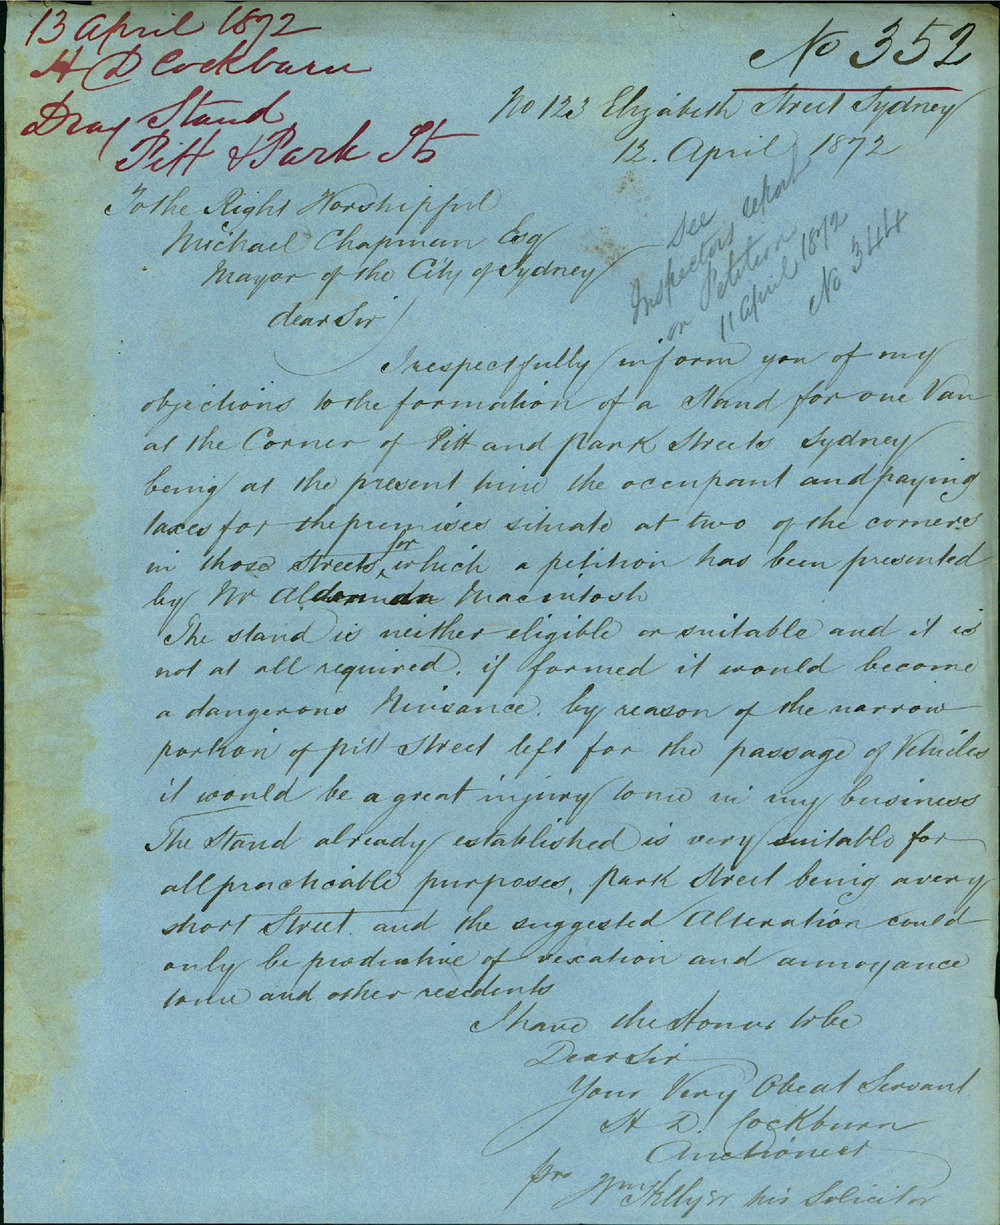 13 April 1872
H D Cockburn
Dray Stand
Pitt & Park Sts
No 352
No 123 Elizabeth Street Sydney
12. April 1872
See
Inspectors report
on Petition
11 April 1872
No 344
To the Right Worshipful
Michael Chapman Esq
Mayor of the City of Sydney
dear Sir
I respectfully inform you of my
objections to the formation of a Stand for one Van
at the Corner of Pitt and Park Streets Sydney
being at the present time the occupant and paying
taxes for the premises situate at two of the corners
in those streets for which a petition has been presented
by Mr Alderman Macintosh
The stand is neither eligible or suitable and it is
not at all required. if formed it would become
a dangerous Nuisance. by reason of the narrow
portion of pitt Street left for the passage of Vehicles
it would be a great injury to me in my business
The Stand already established is very suitable for
all practicable purposes, Park Street being a very
short Street. and the suggested Alteration could
only be productive of vexation and annoyance
to me and other residents
I have the Honor to be
Dear Sir
Your Very Obedt Servant
H D. Cockburn
Auctioneer
pro Wm Hellyer his Solicitor